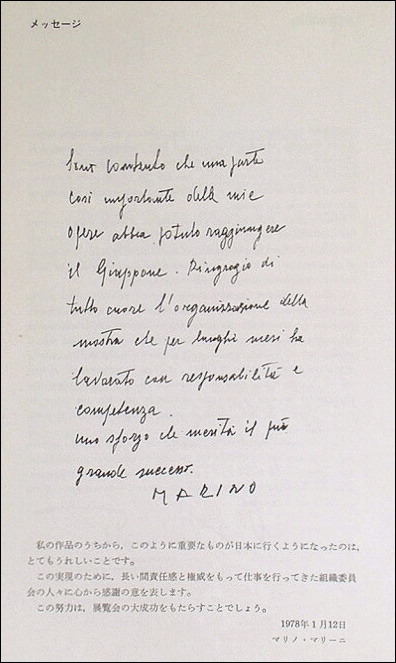 メッセージ
Sono contento che una parte
così importante delle mie
opere abbia potuto raggiungere
il Giappone. Ringrazio di
tutto cuore l'organizzazione della
mostra che per lunghi mesi ha
lavorato con responsabilità e
competenza.
uno sforzo che merita il più
grande successo.
MARINO
私の作品のうちから，このように重要なものが日本に行くようになったのは，
とてもうれしいことです。
この実現のために，長い間責任感と権威をもって仕事を行ってきた組織委員
会の人々に心から感謝の意を表します。
この努力は，展覧会の大成功をもたらすことでしょう。
1978年1月12日
マリノ・マリーニ